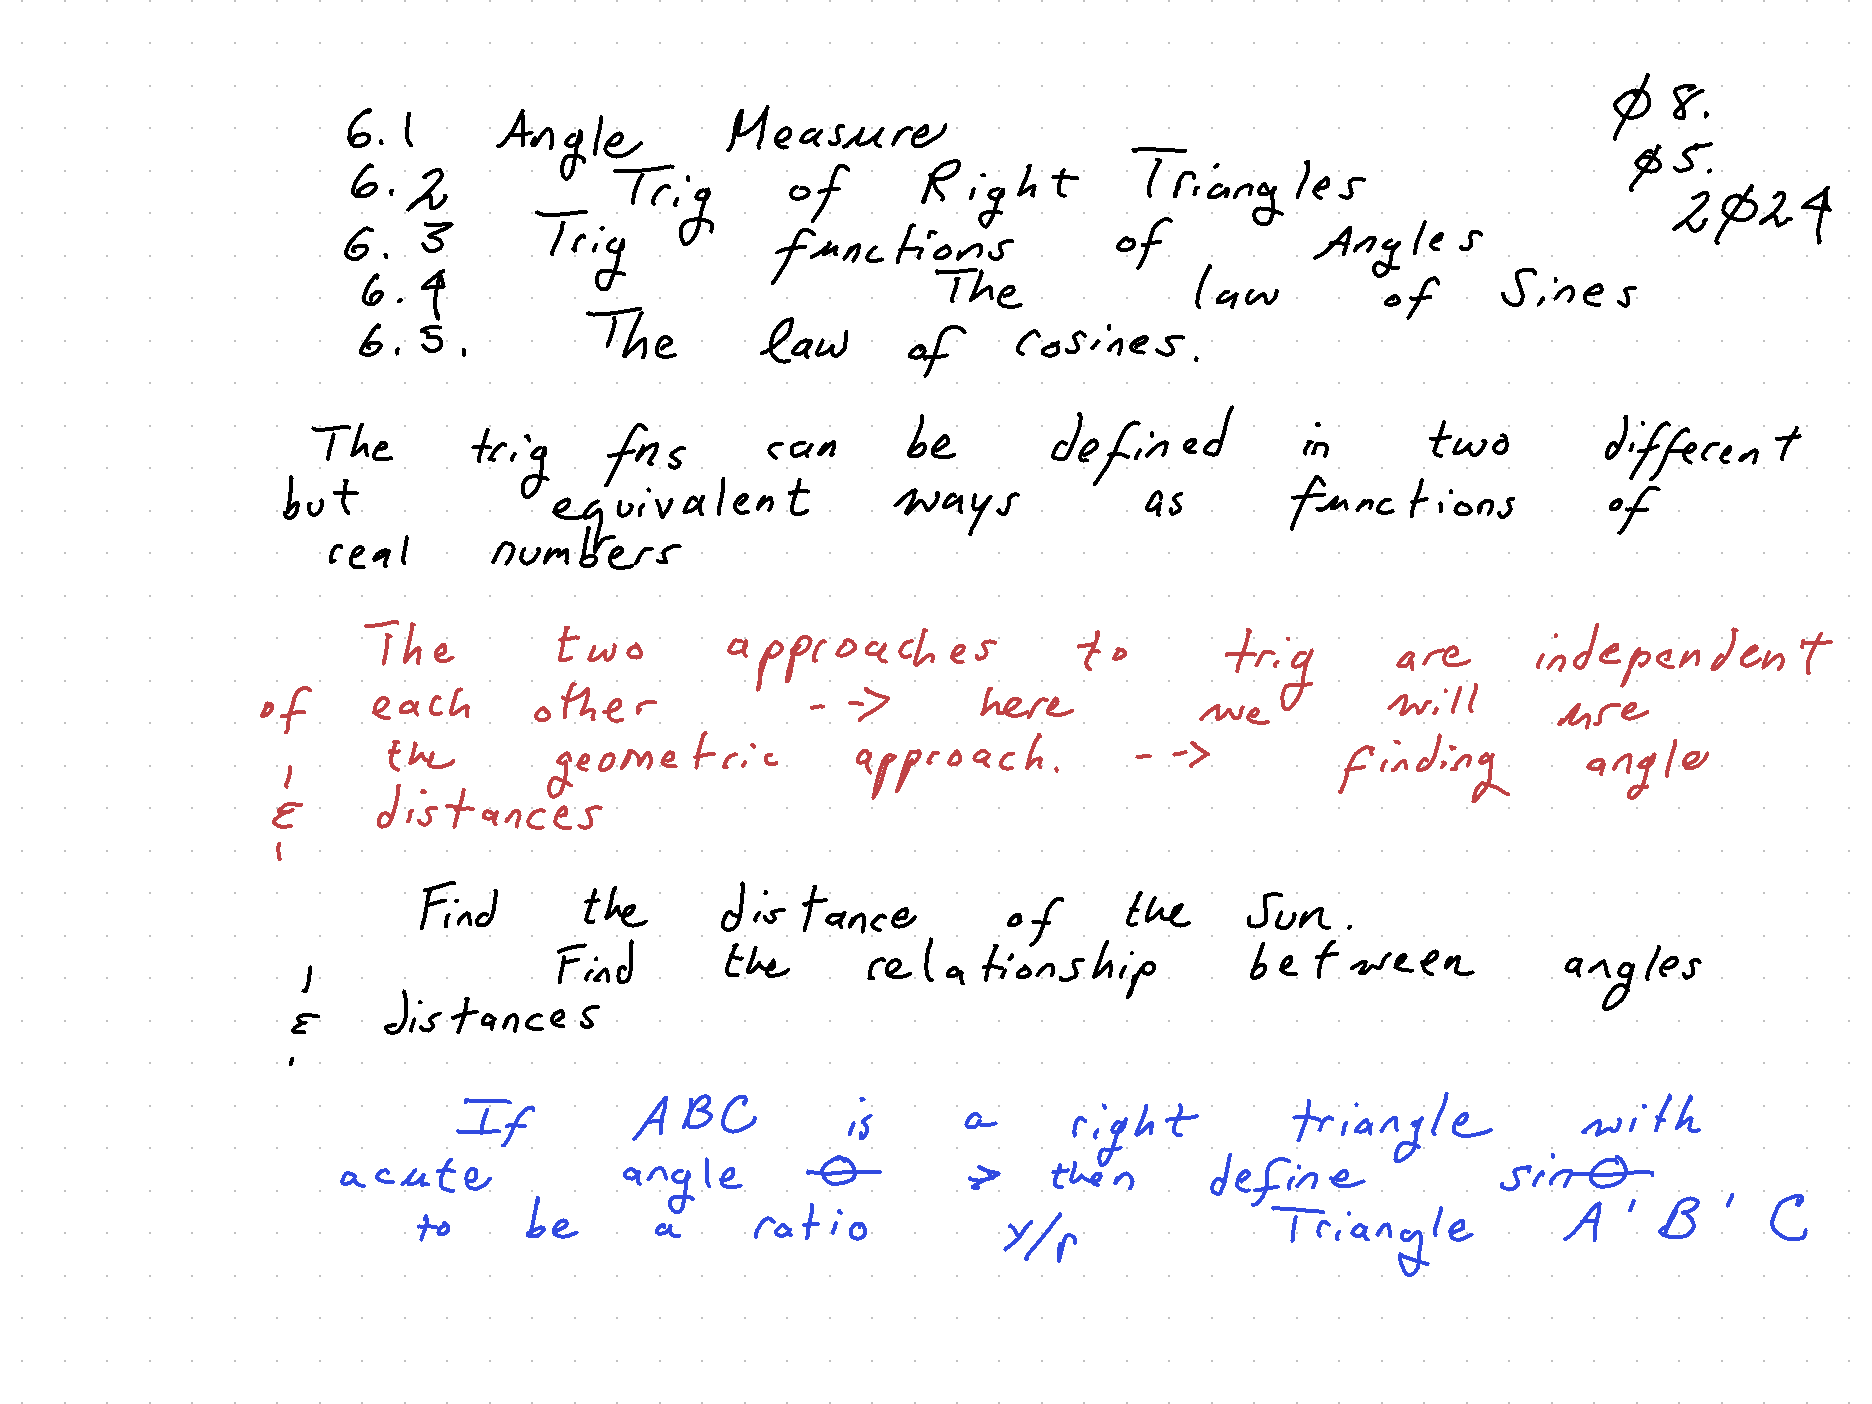 ø8.
ø5.
2ø24
6.1 Angle Measure
6.2 Trig of Right Triangles
6.3 Trig functions of Angles
6.4 The law of Sines
6.5. The law of cosines.
The trig fns can be defined in two different
but equivalent ways as functions of
real numbers
The two approaches to trig are independent
of each other --> here we will use
the geometric approach. --> finding angle
& distances
Find the distance of the Sun.
Find the relationship between angles
& distances
If ABC is a right triangle with
acute angle θ > then define sinθ
to be a ratio y/r Triangle A'B'C